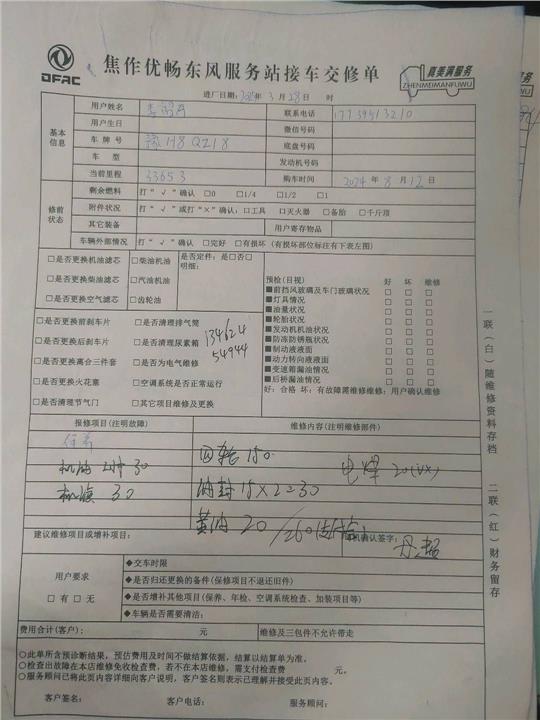 DFAC
焦作优畅东风服务站接车交修单
真美满服务
ZHENMEIMANFUWU
进厂日期: 年 3 月 28 日 时
基本信息
用户姓名 联系电话 17739513210
用户生日 微信号码
车牌号 豫H8QZ18 底盘号码
车型 发动机号码
当前里程 33653 购车时间 2024年8月12日
修前状态
剩余燃料 打“√”确认 □0 □1/4 □1/2 □1
附件状况 打“√”或打“×”确认:□工具 □灭火器 □备胎 □千斤顶
其它装备 用户寄存物品
车辆外部情况 打“√”确认 □完好 □有损坏(有损坏部位标注有下表左图)
□是否更换机油滤芯 □柴油机油
□是否更换柴油滤芯 □汽油机油
□是否更换空气滤芯 □齿轮油
是否定件:是□否□
明细:
□是否更换前刹车片 □是否清理排气筒
□是否更换后刹车片 □是否清理尿素箱
□是否更换离合三件套 □是否为电气维修
□是否更换火花塞 □空调系统是否正常运行
□是否清理节气门 □其它项目维修及更换
134624
54944
预检(目视) 好 坏 维修
■前挡风玻璃及车门玻璃状况 □ □ □
■灯具情况 □ □ □
■油量状况 □ □ □
■轮胎状况 □ □ □
■发动机机油状况 □ □ □
■防冻防锈瓶状况 □ □ □
■制动液液面 □ □ □
■动力转向液液面 □ □ □
■变速箱漏油情况 □ □ □
■后桥漏油情况 □ □ □
好:合格 坏:有故障需维修维修:用户确认维修
报修项目(注明故障) 维修内容(注明维修部件)
保养
机油 30
机滤 30
150
电焊
油封15×2=30
黄油 20
建议维修项目或增补项目:
确认签字:
用户要求
□有 □无
◆交车时限
◆是否归还更换的备件(保修项目不退还旧件)
◆是否增补其他项目(保养、年检、空调系统检查、加装项目等)
◆车辆是否需要清洁:
费用合计(客户): 元 维修及三包件不允许带走
○此单所含预诊断结果,预估费用及时间不做结算依据,结算以结算单为准。
○检查出故障在本店维修免收检查费,若不在本店维修,需支付检查费 元。
○服务顾问已将此页内容详细向客户说明,客户签名则表示已理解并接受此页内容。
客户签名: 客户电话: 服务顾问:
一联(白)随维修资料存档
二联(红)财务留存